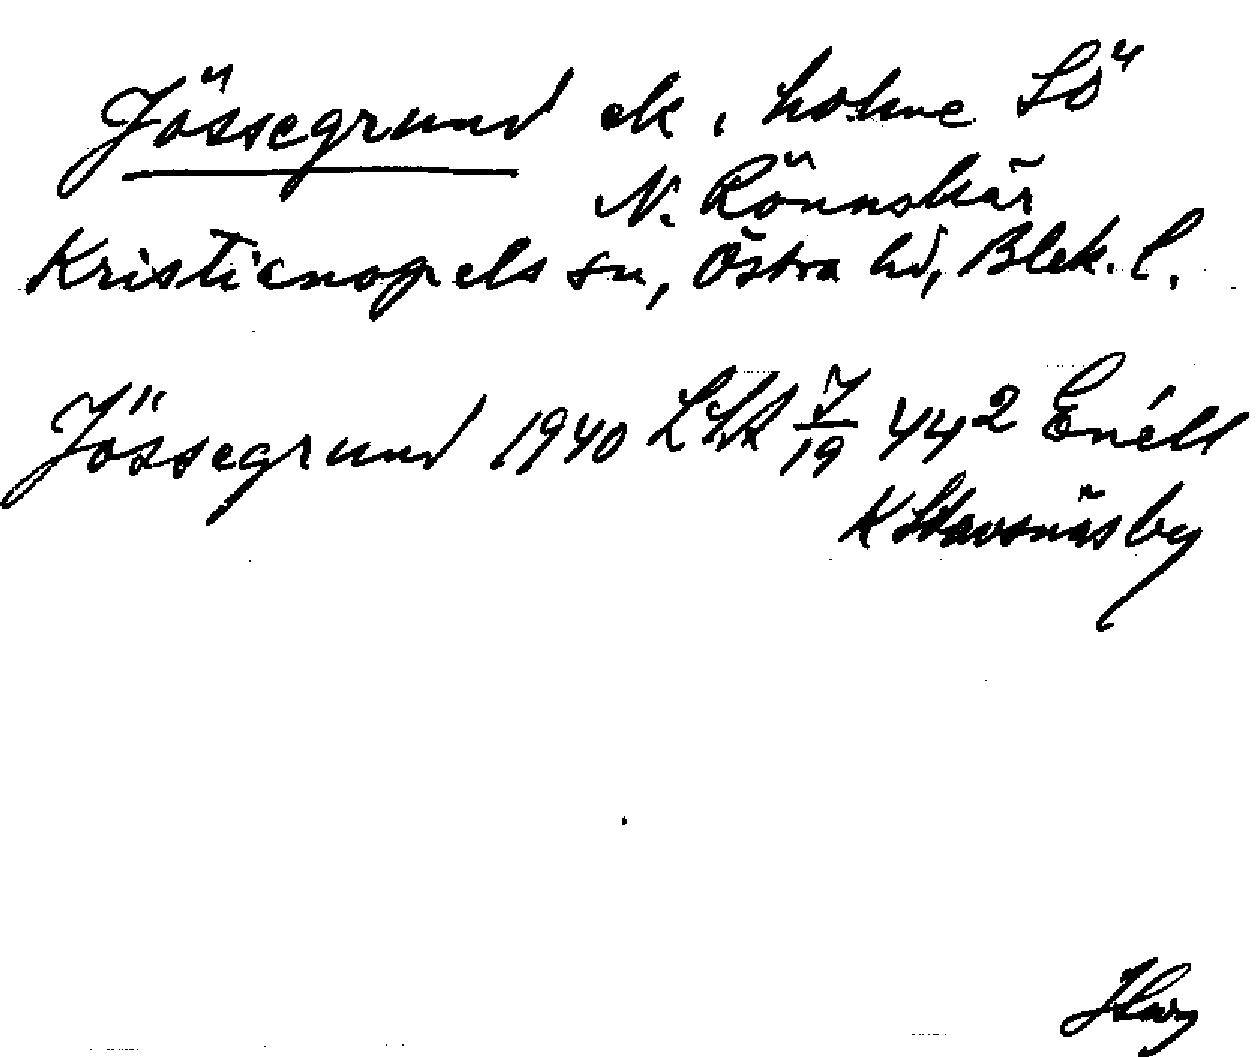 Jössegrund ek. holme SÖ
N. Rönnskär
Kristianopels sn, Östra hd, Blek. l.
Jössegrund 1940 LSA 7/19 44² Enéll
K Stavsnäsby